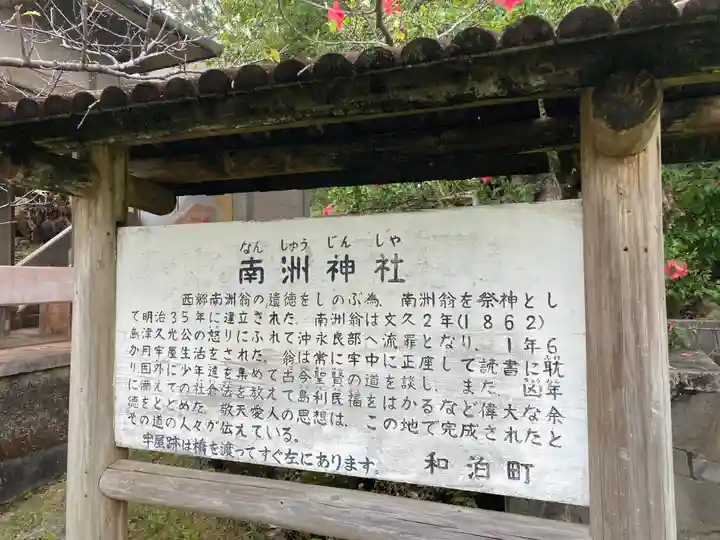 なんしゅうじんしゃ
南洲神社
西郷南洲翁の遺徳をしのぶ為、南洲翁を祭神とし
て明治35年に建立された。南洲翁は文久2年(1862)
島津久光公の怒りにふれて沖永良部へ流罪となり、1年6
か月牢屋生活をされた。翁は常に牢中に正座して読書に耽
り囲外に少年達を集めて古今聖賢の道を談し、また、凶年
に備えての社倉法を教えて島利民福をはかるなど偉大な余
徳をとどめた。敬天愛人の思想は、この地で完成されたと
その道の人々が伝えている。
牢屋跡は橋を渡ってすぐ左にあります。 和泊町